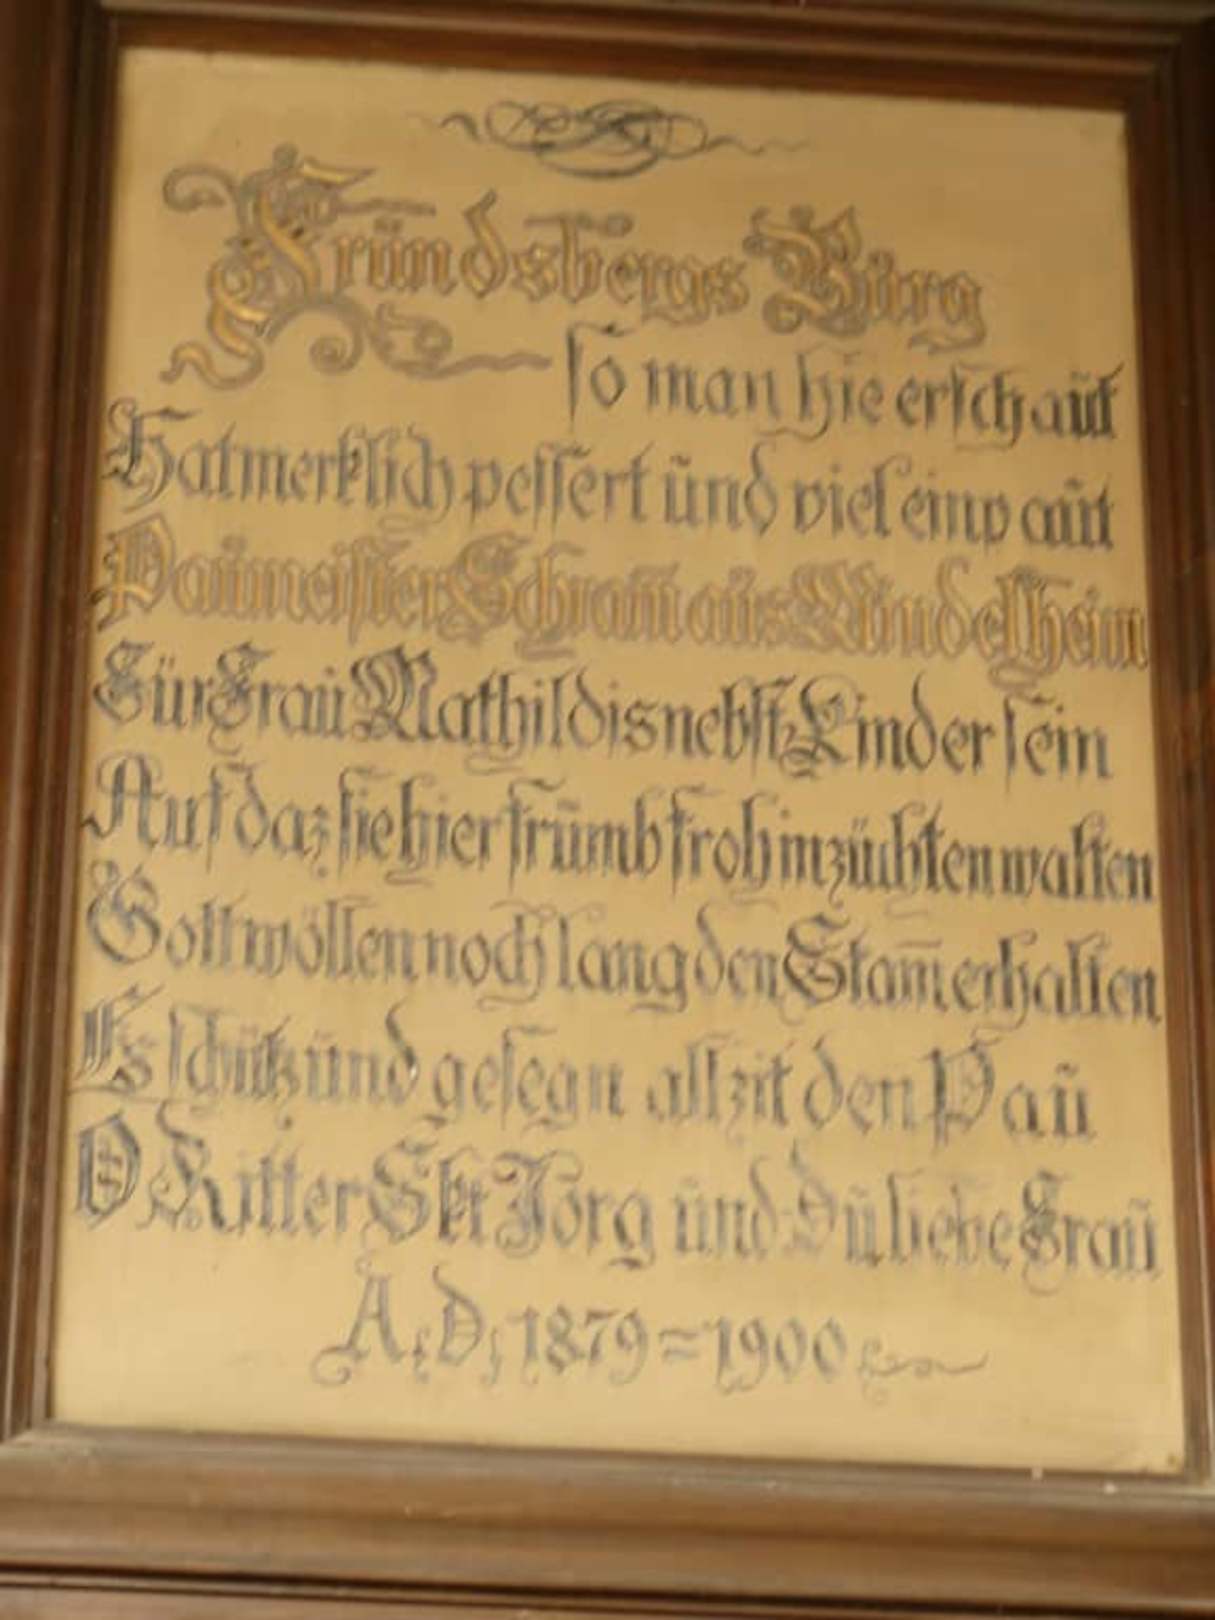 Fründsbergs Bürg
so man hie erschaüt
Hat merklich pessert ünd viel eingpaüt
Paümeister Schraü aüs Mindelheim
Für Fraü Mathildis nebst Kinder sein
Auf daz sie hier frümb froh in züchten walten
Gott wöllen noch lang den Stam̄ erhalten
Es schütz ünd gesegn allzit den Paü
O Ritter Skt Jörg ünd Dü liebe Fraü
A. D. 1879=1900